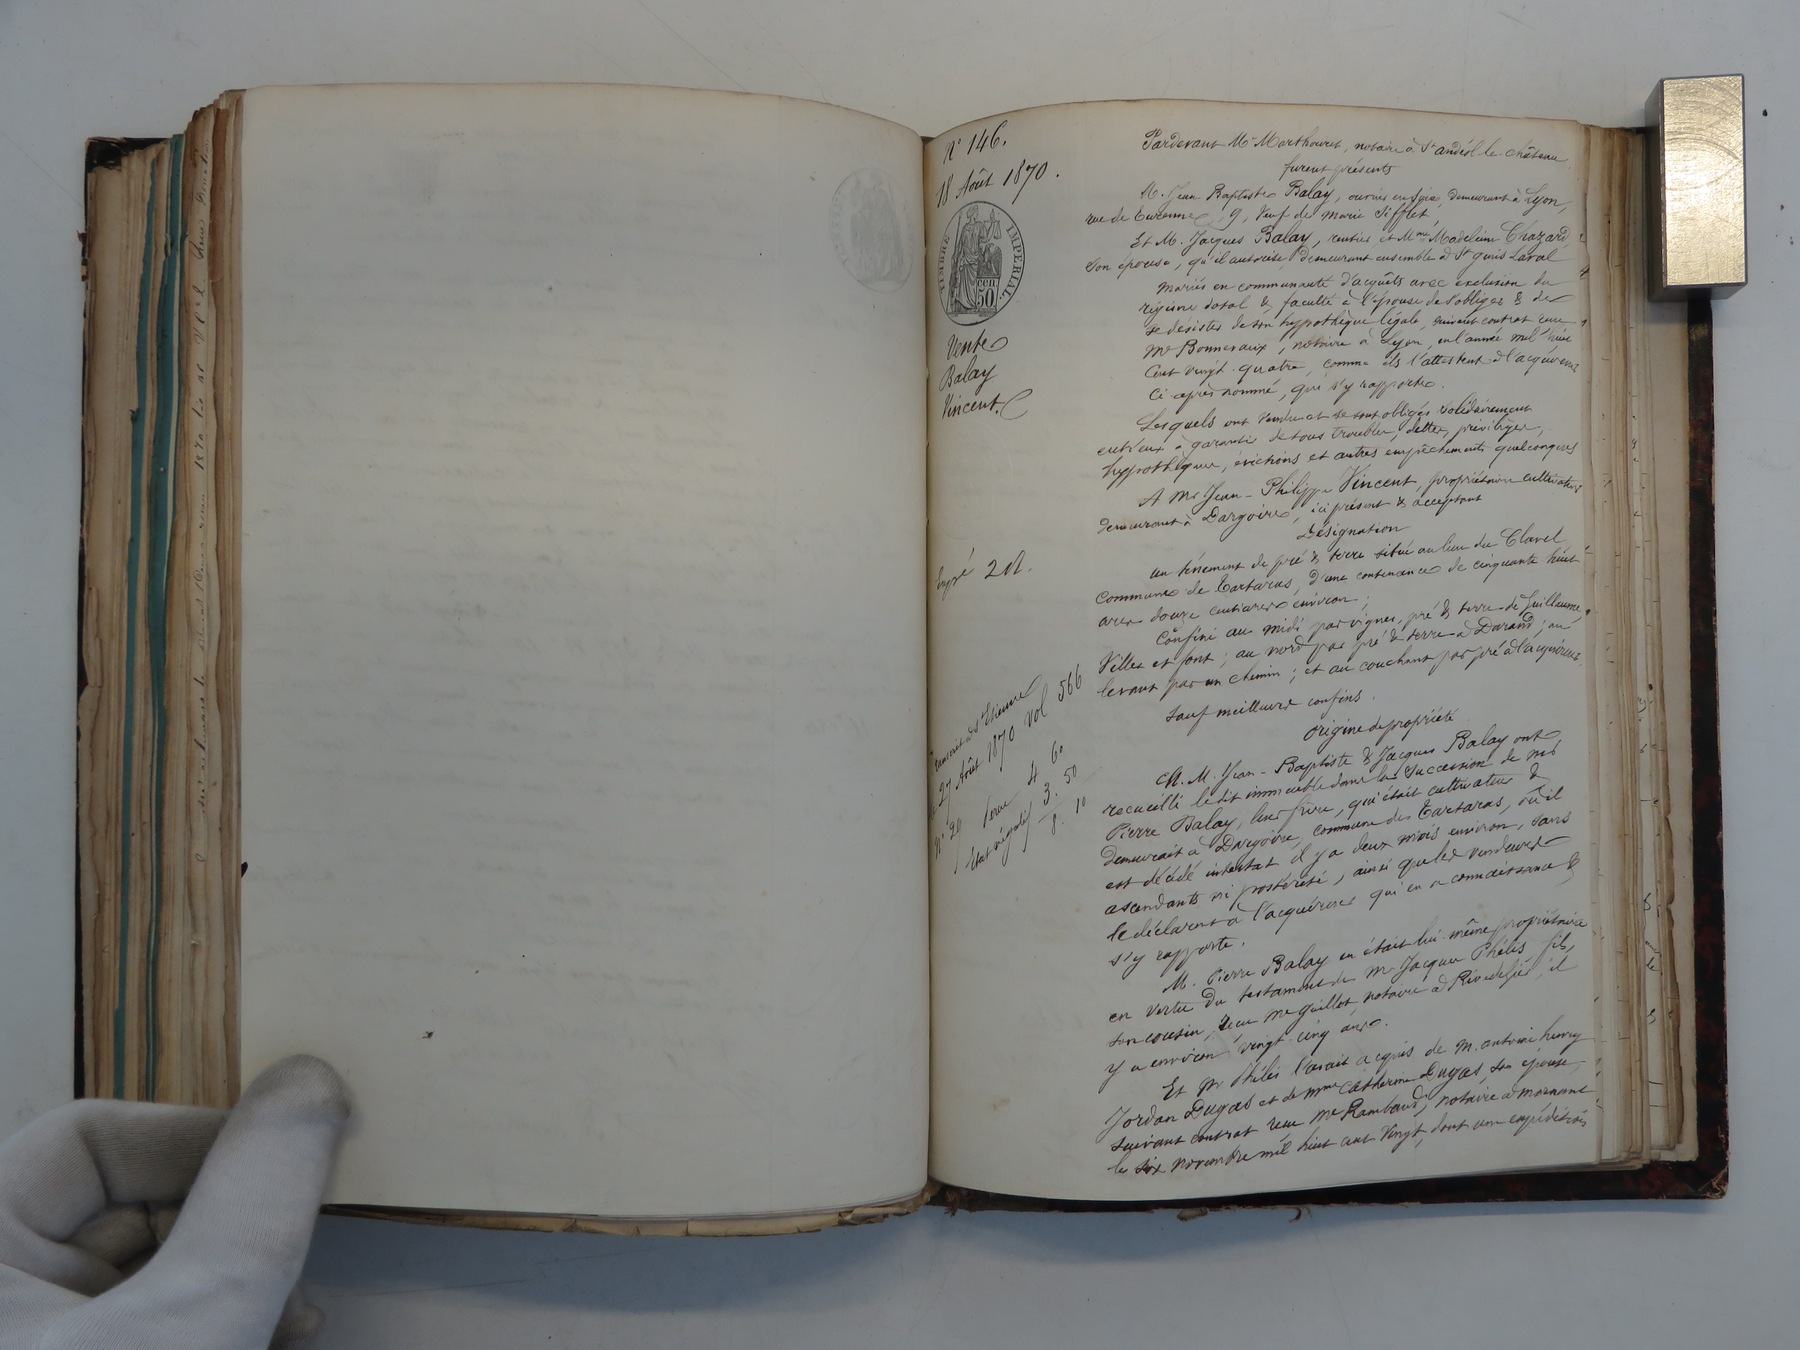 N° 146.
18 Août 1870.
TIMBRE IMPERIAL.
50 cen
Vente
Balay
Vincent.
Expé 2 R.
Transcrit à St Etienne
le 27 Août 1870 vol 566
N° 29 4 60
Etat négatif 3. 50
8. 10
Pardevant Me Marthouret, notaire à St andéol-le-château
furent présents
M. Jean Baptiste Balay, ouvrier en soie, demeurant à Lyon,
rue de Turenne, 9, veuf de Marie Sifflet,
Et M. Jacques Balay, rentier et Mme Madeleine Chazard
son épouse, qu'il autorise, demeurant ensemble à St genis Laval
mariés en communauté d'acquêts avec exclusion du
régime dotal & faculté à l'épouse de s'obliger & de
se désister de son hypothèque légale, suivant contrat reçu
Me Bonnevaux, notaire à Lyon, en l'année mil huit
cent vingt-quatre, comme ils l'attestent à l'acquéreur
ci-après nommé, qui s'y rapporte.
Lesquels ont vendu et se sont obligés solidairement
entr'eux à garantir de tous troubles, dettes, privilèges,
hypothèques, évictions et autres empêchements quelconques
A Mr Jean-Philippe Vincent, propriétaire cultivateur
demeurant à Dargoire, ici présent & acceptant
Désignation
un ténement de pré & terre situé au lieu du Clavel
commune de Tartaras, d'une contenance de cinquante huit
ares douze centiares environ;
Confiné au midi par vignes, pré & terre de Guillaume,
Villes et font; au nord par pré & terre à Durand; au
levant par un chemin; et au couchant par pré à l'acquéreur
sauf meilleurs confins.
Origine de propriété
M. M. Jean-Baptiste & Jacques Balay ont
recueilli ledit immeuble dans la succession de Mr
Pierre Balay, leur frère, qui était cultivateur &
demeurait à Dargoire, commune de Tartaras, où il
est décédé intestat il y a deux mois environ, sans
ascendants ni postérité, ainsi que les vendeurs
le déclarent à l'acquéreur qui en a connaissance &
s'y rapporte.
M. Pierre Balay en était lui-même propriétaire
en vertu du testament de Mr Jacques Philis fils,
son cousin, reçu Me Guillot, notaire à Rivedegier, il
y a environ vingt-cinq ans.
Et Mr Philis l'avait acquis de M. antoine henry
Jordan Dugas et de Mme Catherine Dugas, son épouse,
suivant contrat reçu Me Rambaud, notaire à mornant
le six novembre mil huit cent vingt, dont une expédition